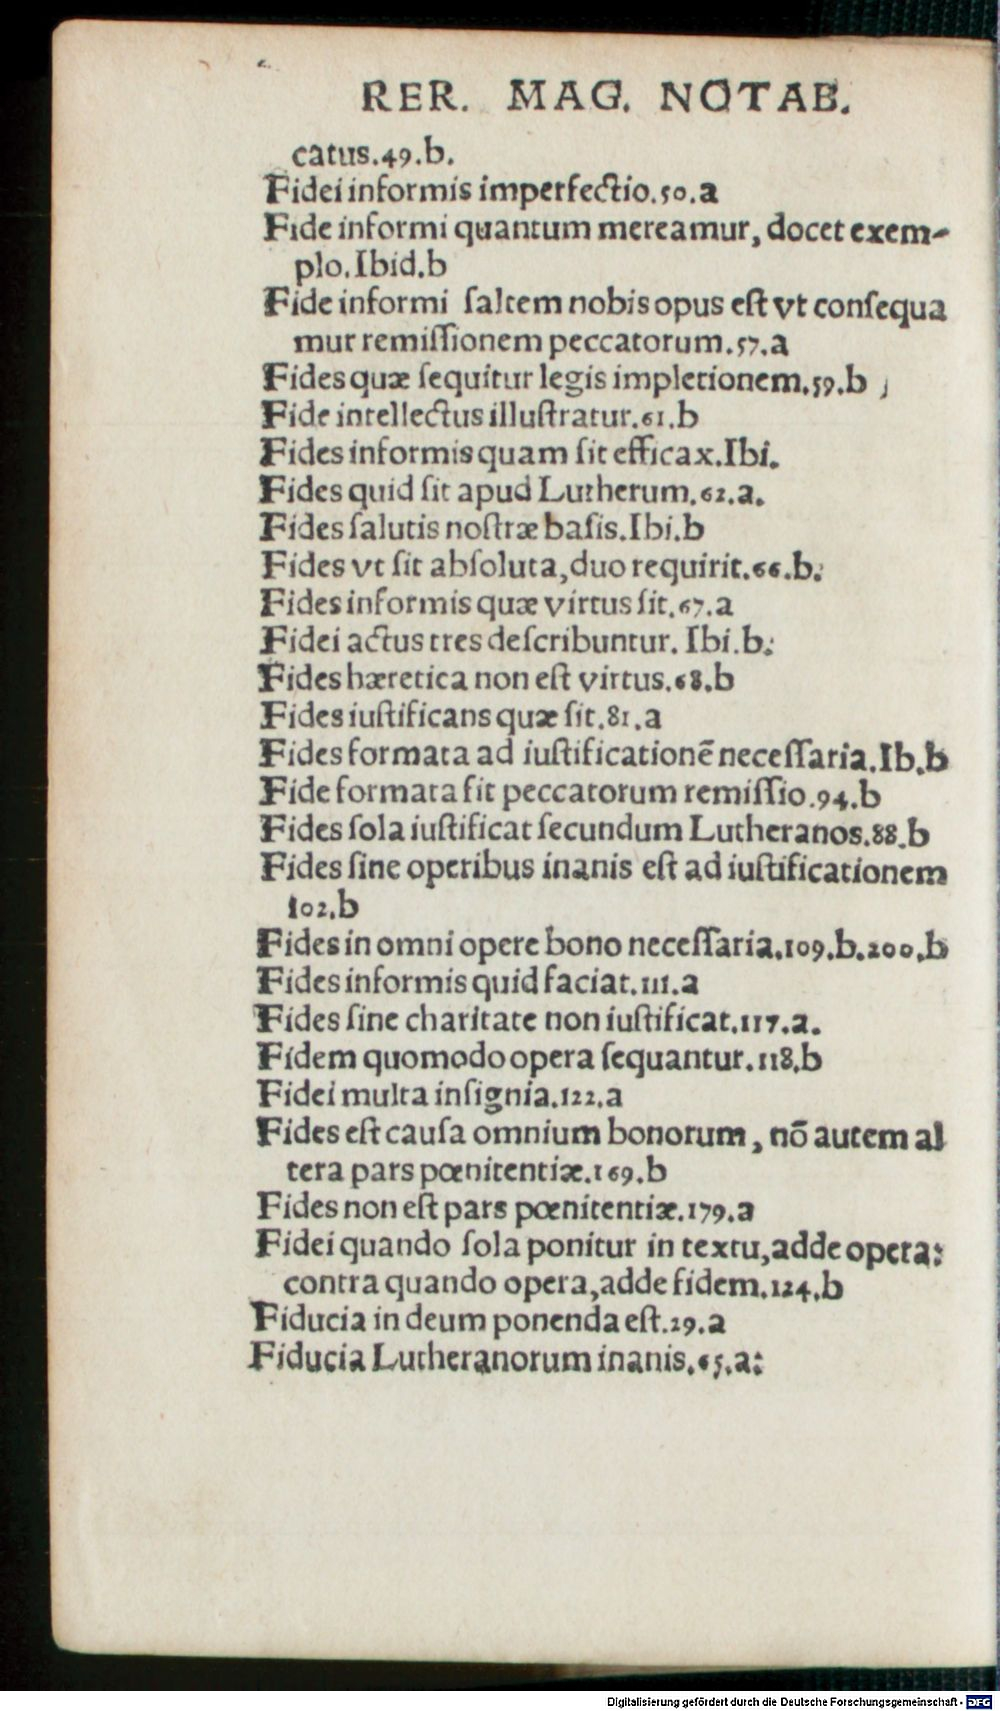 RER. MAG. NOTAB.
catus.49.b.
Fidei informis imperfectio.50.a
Fide informi quantum mereamur, docet exem-
plo.Ibid.b
Fide informi ſaltem nobis opus eſt vt conſequa
mur remiſſionem peccatorum.57.a
Fides quæ ſequitur legis impletionem.59.b
Fide intellectus illuſtratur.61.b
Fides informis quam ſit efficax.Ibi.
Fides quid ſit apud Lutherum.62.a.
Fides ſalutis noſtræ baſis.Ibi.b
Fides vt ſit abſoluta,duo requirit.66.b.
Fides informis quæ virtus ſit.67.a
Fidei actus tres deſcribuntur. Ibi.b.
Fides hæretica non eſt virtus.68.b
Fides iuſtificans quæ ſit.81.a
Fides formata ad iuſtificationē neceſſaria.Ib.b
Fide formata fit peccatorum remiſſio.94.b
Fides ſola iuſtificat ſecundum Lutheranos.88.b
Fides ſine operibus inanis eſt ad iuſtificationem
102.b
Fides in omni opere bono neceſſaria.109.b.200.b
Fides informis quid faciat.111.a
Fides ſine charitate non iuſtificat.117.a.
Fidem quomodo opera ſequantur.118.b
Fidei multa inſignia.122.a
Fides eſt cauſa omnium bonorum, nō autem al
tera pars pœnitentiæ.169.b
Fides non eſt pars pœnitentiæ.179.a
Fidei quando ſola ponitur in textu,adde opera:
contra quando opera,adde fidem.124.b
Fiducia in deum ponenda eſt.29.a
Fiducia Lutheranorum inanis.65.a:
Digitalisierung gefördert durch die Deutsche Forschungsgemeinschaft - DFG